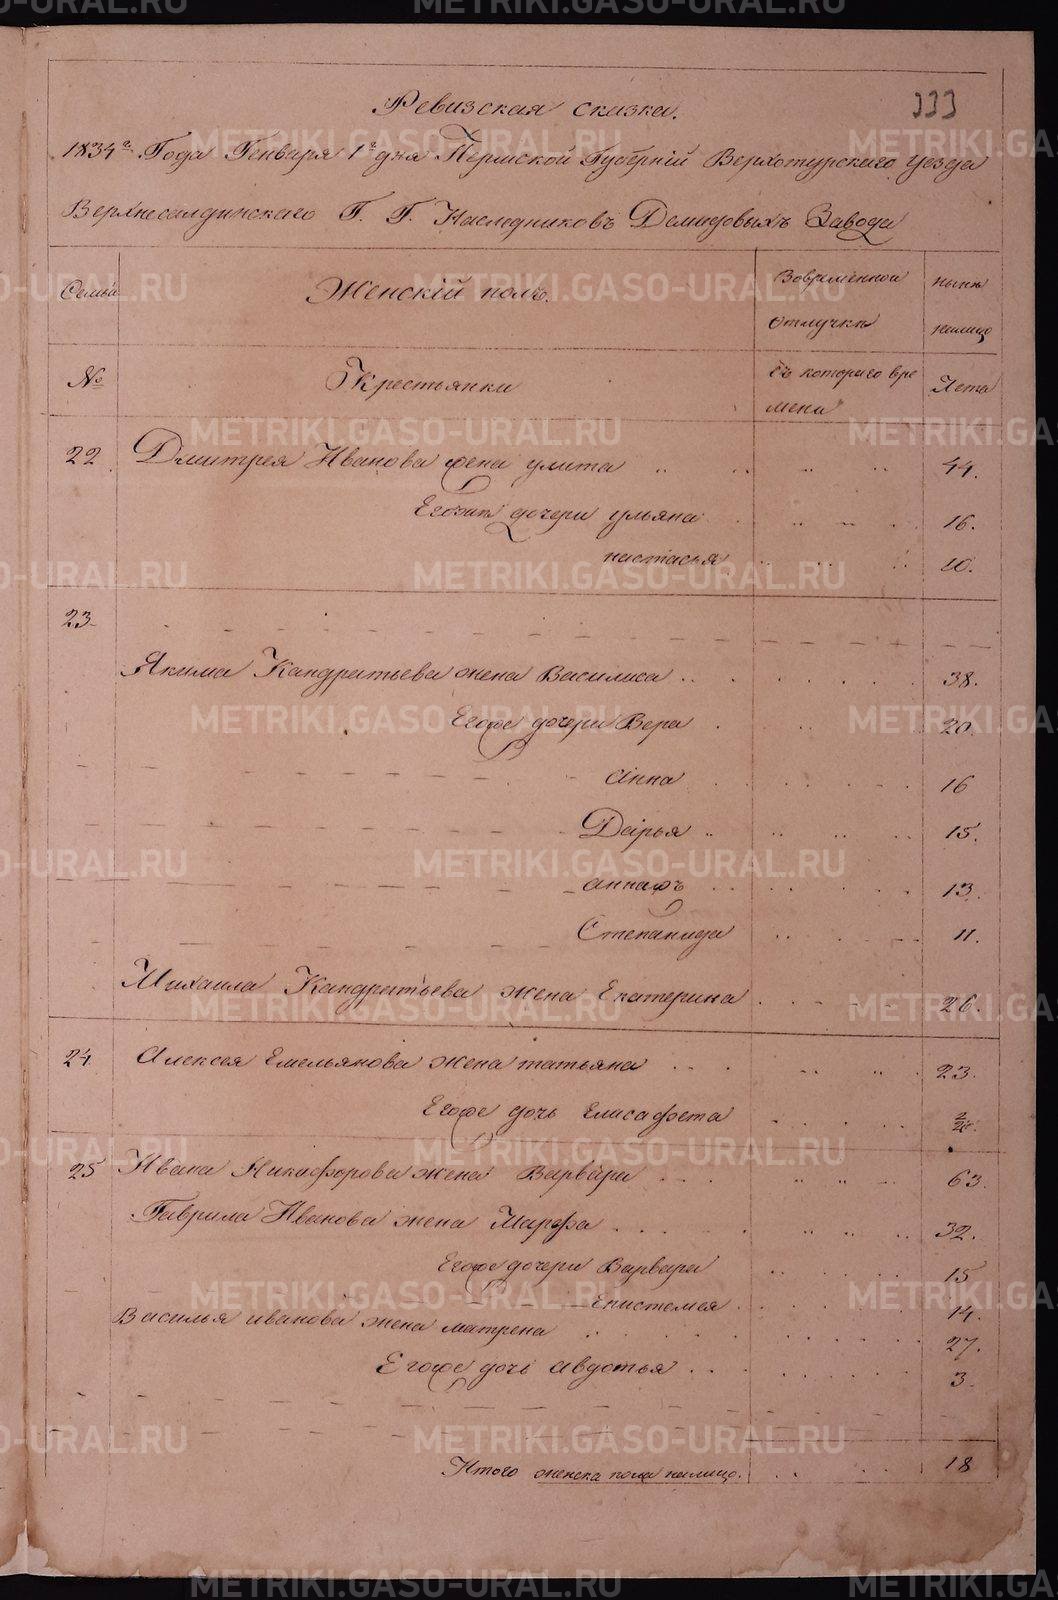 Ревизская сказка.
333
1834го Года Генваря 1го дня Пермской Губерній Верхотурскаго уезда
Верхнесалдинскаго Г. Г. Наследниковъ Демидовыхъ Завода
Семьи
Женскій полъ.
Вовременной отлучкѣ
нынѣ налицо
№
Крестьянки
съ котораго вре
мени
Лета
22 Дмитрея Иванова жена улита 44.
Егоже дочери ульяна 16.
настасья 10.
23
Якима Кандратьева жена Василиса 38.
Егоже дочери Вера 20.
Анна 16
Дарья 15.
Степанида 11.
13.
Михаила Кандратьева жена Екатерина 26.
24 Алексея Емельянова жена татьяна 23.
Егоже дочь Елисафета
25 Ивана Никифорова жена Варвара 63.
Гаврила Иванова жена Марфа 32.
Егоже дочери Варвара 15
Епистемея 14.
Василья иванова жена матрена 27.
Егоже дочь авдотья 3.
Итого женска пола налицо. 18
METRIKI.GASO-URAL.RU